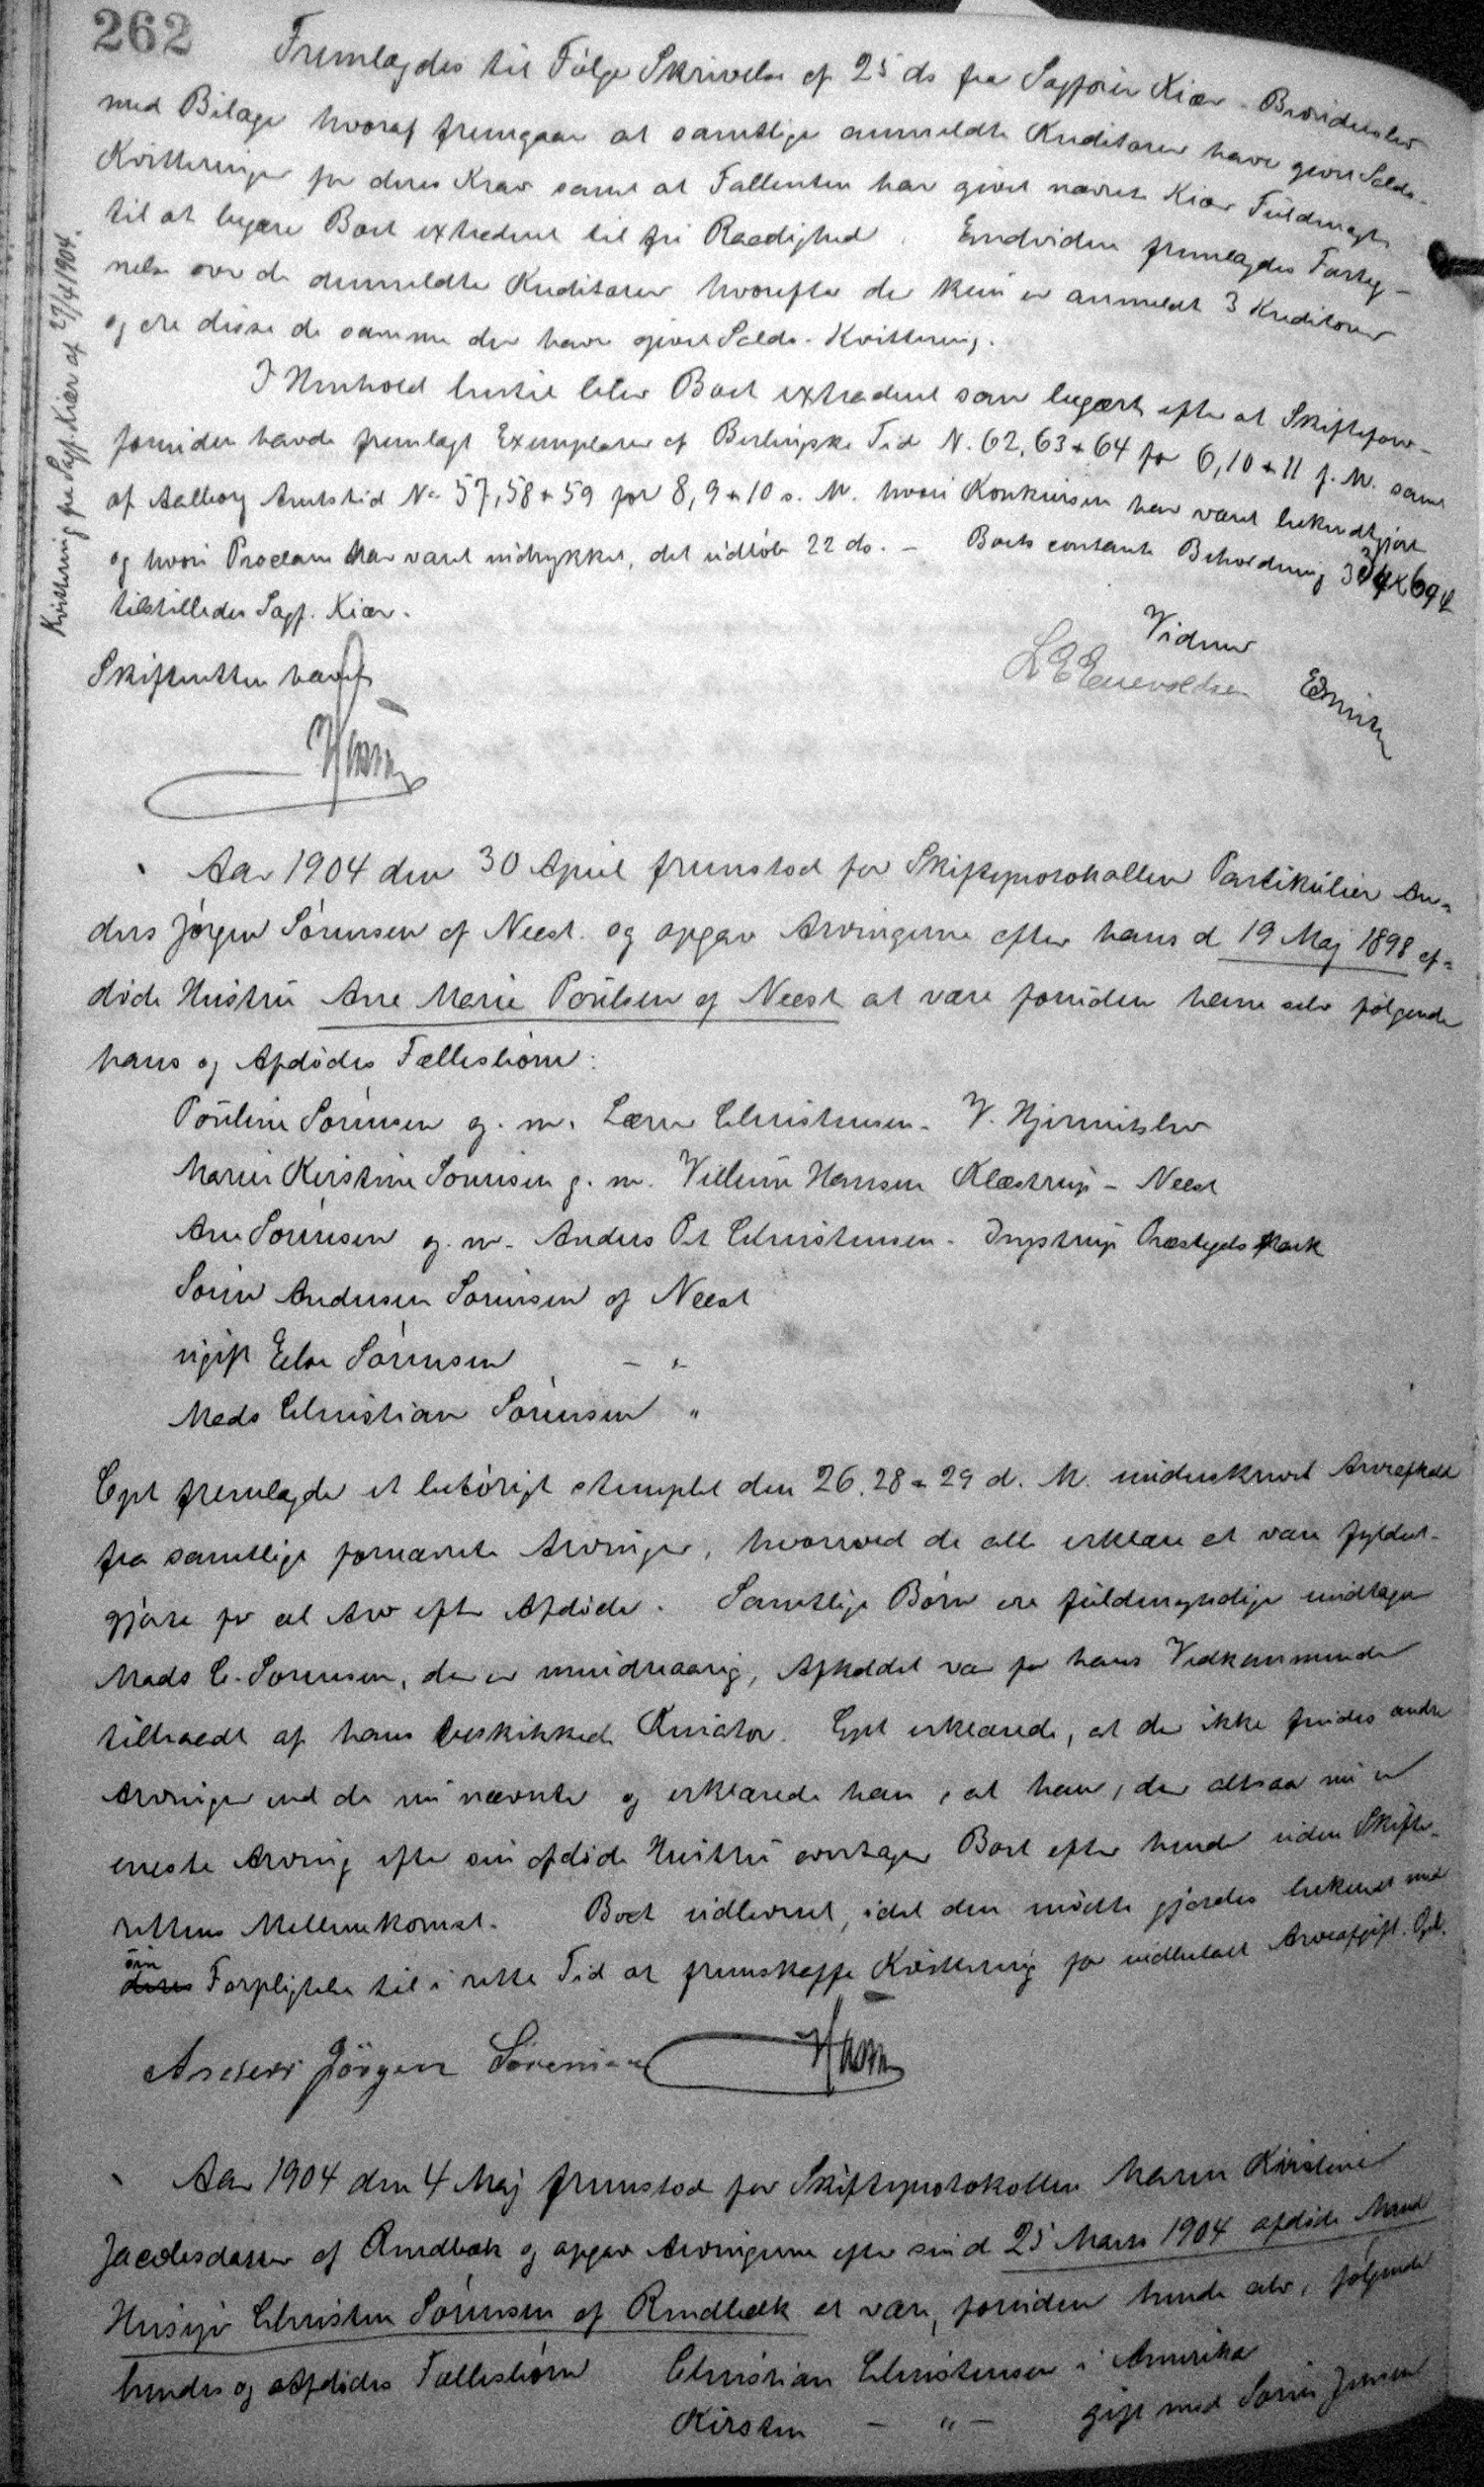 262
Fremlagdes til Følge Skrivelse af 25 ds fra Sagfører Kiær - Brønderslev
med Bilage hvoraf fremgaar at samtlige anmeldte Kreditorer have givet Saldo-
Kvitteringer for deres Krav samt at Fallenten har givet nævnte Kiær Fuldmagt
til at begære Boet extraderet til fri Raadighed. Endvidere fremlagdes Forteg-
nelse over de anmeldte Kreditorer hvorefter der kun er anmeldt 3 Kreditorer
og ere disse de samme der have givet Saldo-Kvittering.
I Henhold hertil blev Boet extraderet som begært efter at Skifteforv-
foruden havde fremlagt Exemplarer af Berlingske Tid N. 62, 63 + 64 for 6, 10 + 11 f. M. samt
af Aalborg Amtstid No 57, 58 + 59 for 8, 9 + 10 s. M. hvori Konkursen har været bekendtgjort
og hvori Proclama har været indrykket, det udløb 22 ds. - Boets contante Beholdning
tilstilledes Sagf. Kiær.
Kvittering fra Sagf. Kiær af 27/4 1904.
Vidner
Skifteretten hævet
L E Enevoldsen
Aar 1904 den 30 April fremstod for Skifteprotokollen Partikulier An-
ders Jørgen Sørensen af Neest. og opgav Arvingerne efter hans d 19 Maj 1898 af-
døde Hustru Ane Marie Poulsen af Neest at være foruden ham selv følgende
hans og Afdødes Fællesbørn:
Pouline Sørensen g. m. Lærer Christensen - V. Hjermitslev
Maren Kirstine Sørensen g. m. Villum Hansen Klæstrup - Neest
Ane Sørensen g. m. Anders Pet Christensen - Ingstrup Præstegds Mark
Søren Andersen Sørensen af Neest
ugift Else Sørensen - " -
Mads Christian Sørensen "
Cpt fremlagde et behørigt stemplet den 26. 28 & 29 d. M. underskrevet Arveafkald
fra samtlige fornævnte Arvinger, hvorved de alle erklære at være fyldest-
gjorte for al Arv efter Afdøde. Samtlige Børn ere fuldmyndige undtagen
Mads C. Sørensen, der er mindreaarig, Afkaldet var for hans Vedkommende
tiltraadt af hans beskikkede Kurator. Cpt erklærede, at der ikke findes andre
Arvinger end de nu nævnte og erklærede han, at han, der altsaa nu er
eneste Arving efter sin afdøde Hustru overtager Boet efter hende uden Skifte-
rettens Mellemkomst. Boet udleveret, idet den mødte gjordes bekendt med
sin
deres Forpligtelse til i rette Tid at fremskaffe Kvittering for indbetalt Arveafgift. Opl.
Anders Jörgen Sörensen
Aar 1904 den 4 Maj fremstod for Skifteprotokollen Maren Kirstine
Jacobsdatter af Rendbæk og opgav Arvingerne efter sin d 25 Marts 1904 afdøde Mand
Husejer Christen Sørensen af Rendbæk at være, foruden hende selv, følgende
hendes og Afdødes Fællesbørn Christian Christensen i Amerika
Kirsten - " - gift med Søren Jensen